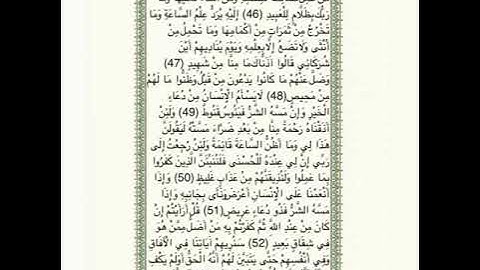 رَبُّكَ بِظَلَّامٍ لِلْعَبِيدِ (46) إِلَيْهِ يُرَدُّ عِلْمُ السَّاعَةِ وَمَا
تَخْرُجُ مِنْ ثَمَرَاتٍ مِنْ أَكْمَامِهَا وَمَا تَحْمِلُ مِنْ
أُنْثَى وَلَا تَضَعُ إِلَّا بِعِلْمِهِ وَيَوْمَ يُنَادِيهِمْ أَيْنَ
شُرَكَائِي قَالُوا آذَنَّاكَ مَا مِنَّا مِنْ شَهِيدٍ (47)
وَضَلَّ عَنْهُمْ مَا كَانُوا يَدْعُونَ مِنْ قَبْلُ وَظَنُّوا مَا لَهُمْ
مِنْ مَحِيصٍ (48) لَا يَسْأَمُ الْإِنْسَانُ مِنْ دُعَاءِ
الْخَيْرِ وَإِنْ مَسَّهُ الشَّرُّ فَيَئُوسٌ قَنُوطٌ (49) وَلَئِنْ
أَذَقْنَاهُ رَحْمَةً مِنَّا مِنْ بَعْدِ ضَرَّاءَ مَسَّتْهُ لَيَقُولَنَّ
هَذَا لِي وَمَا أَظُنُّ السَّاعَةَ قَائِمَةً وَلَئِنْ رُجِعْتُ إِلَى
رَبِّي إِنَّ لِي عِنْدَهُ لَلْحُسْنَى فَلَنُنَبِّئَنَّ الَّذِينَ كَفَرُوا
بِمَا عَمِلُوا وَلَنُذِيقَنَّهُمْ مِنْ عَذَابٍ غَلِيظٍ (50) وَإِذَا
أَنْعَمْنَا عَلَى الْإِنْسَانِ أَعْرَضَ وَنَأَى بِجَانِبِهِ وَإِذَا
مَسَّهُ الشَّرُّ فَذُو دُعَاءٍ عَرِيضٍ (51) قُلْ أَرَأَيْتُمْ إِنْ
كَانَ مِنْ عِنْدِ اللَّهِ ثُمَّ كَفَرْتُمْ بِهِ مَنْ أَضَلُّ مِمَّنْ هُوَ
فِي شِقَاقٍ بَعِيدٍ (52) سَنُرِيهِمْ آيَاتِنَا فِي الْآفَاقِ
وَفِي أَنْفُسِهِمْ حَتَّى يَتَبَيَّنَ لَهُمْ أَنَّهُ الْحَقُّ أَوَلَمْ يَكْفِ